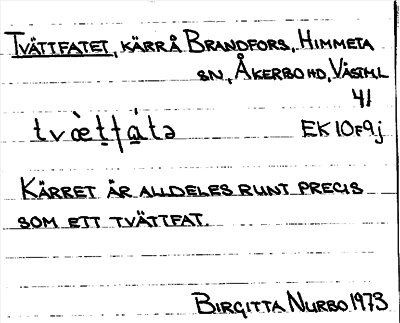 TVÄTTFATET, KÄRR Å BRANDFORS, HIMMETA
SN., ÅKERBO HD, VÄSTML
41
tvæ̀t̯fá̯tə EK 10F9j
KÄRRET ÄR ALLDELES RUNT PRECIS
SOM ETT TVÄTTFAT.
BIRGITTA NURBO 1973